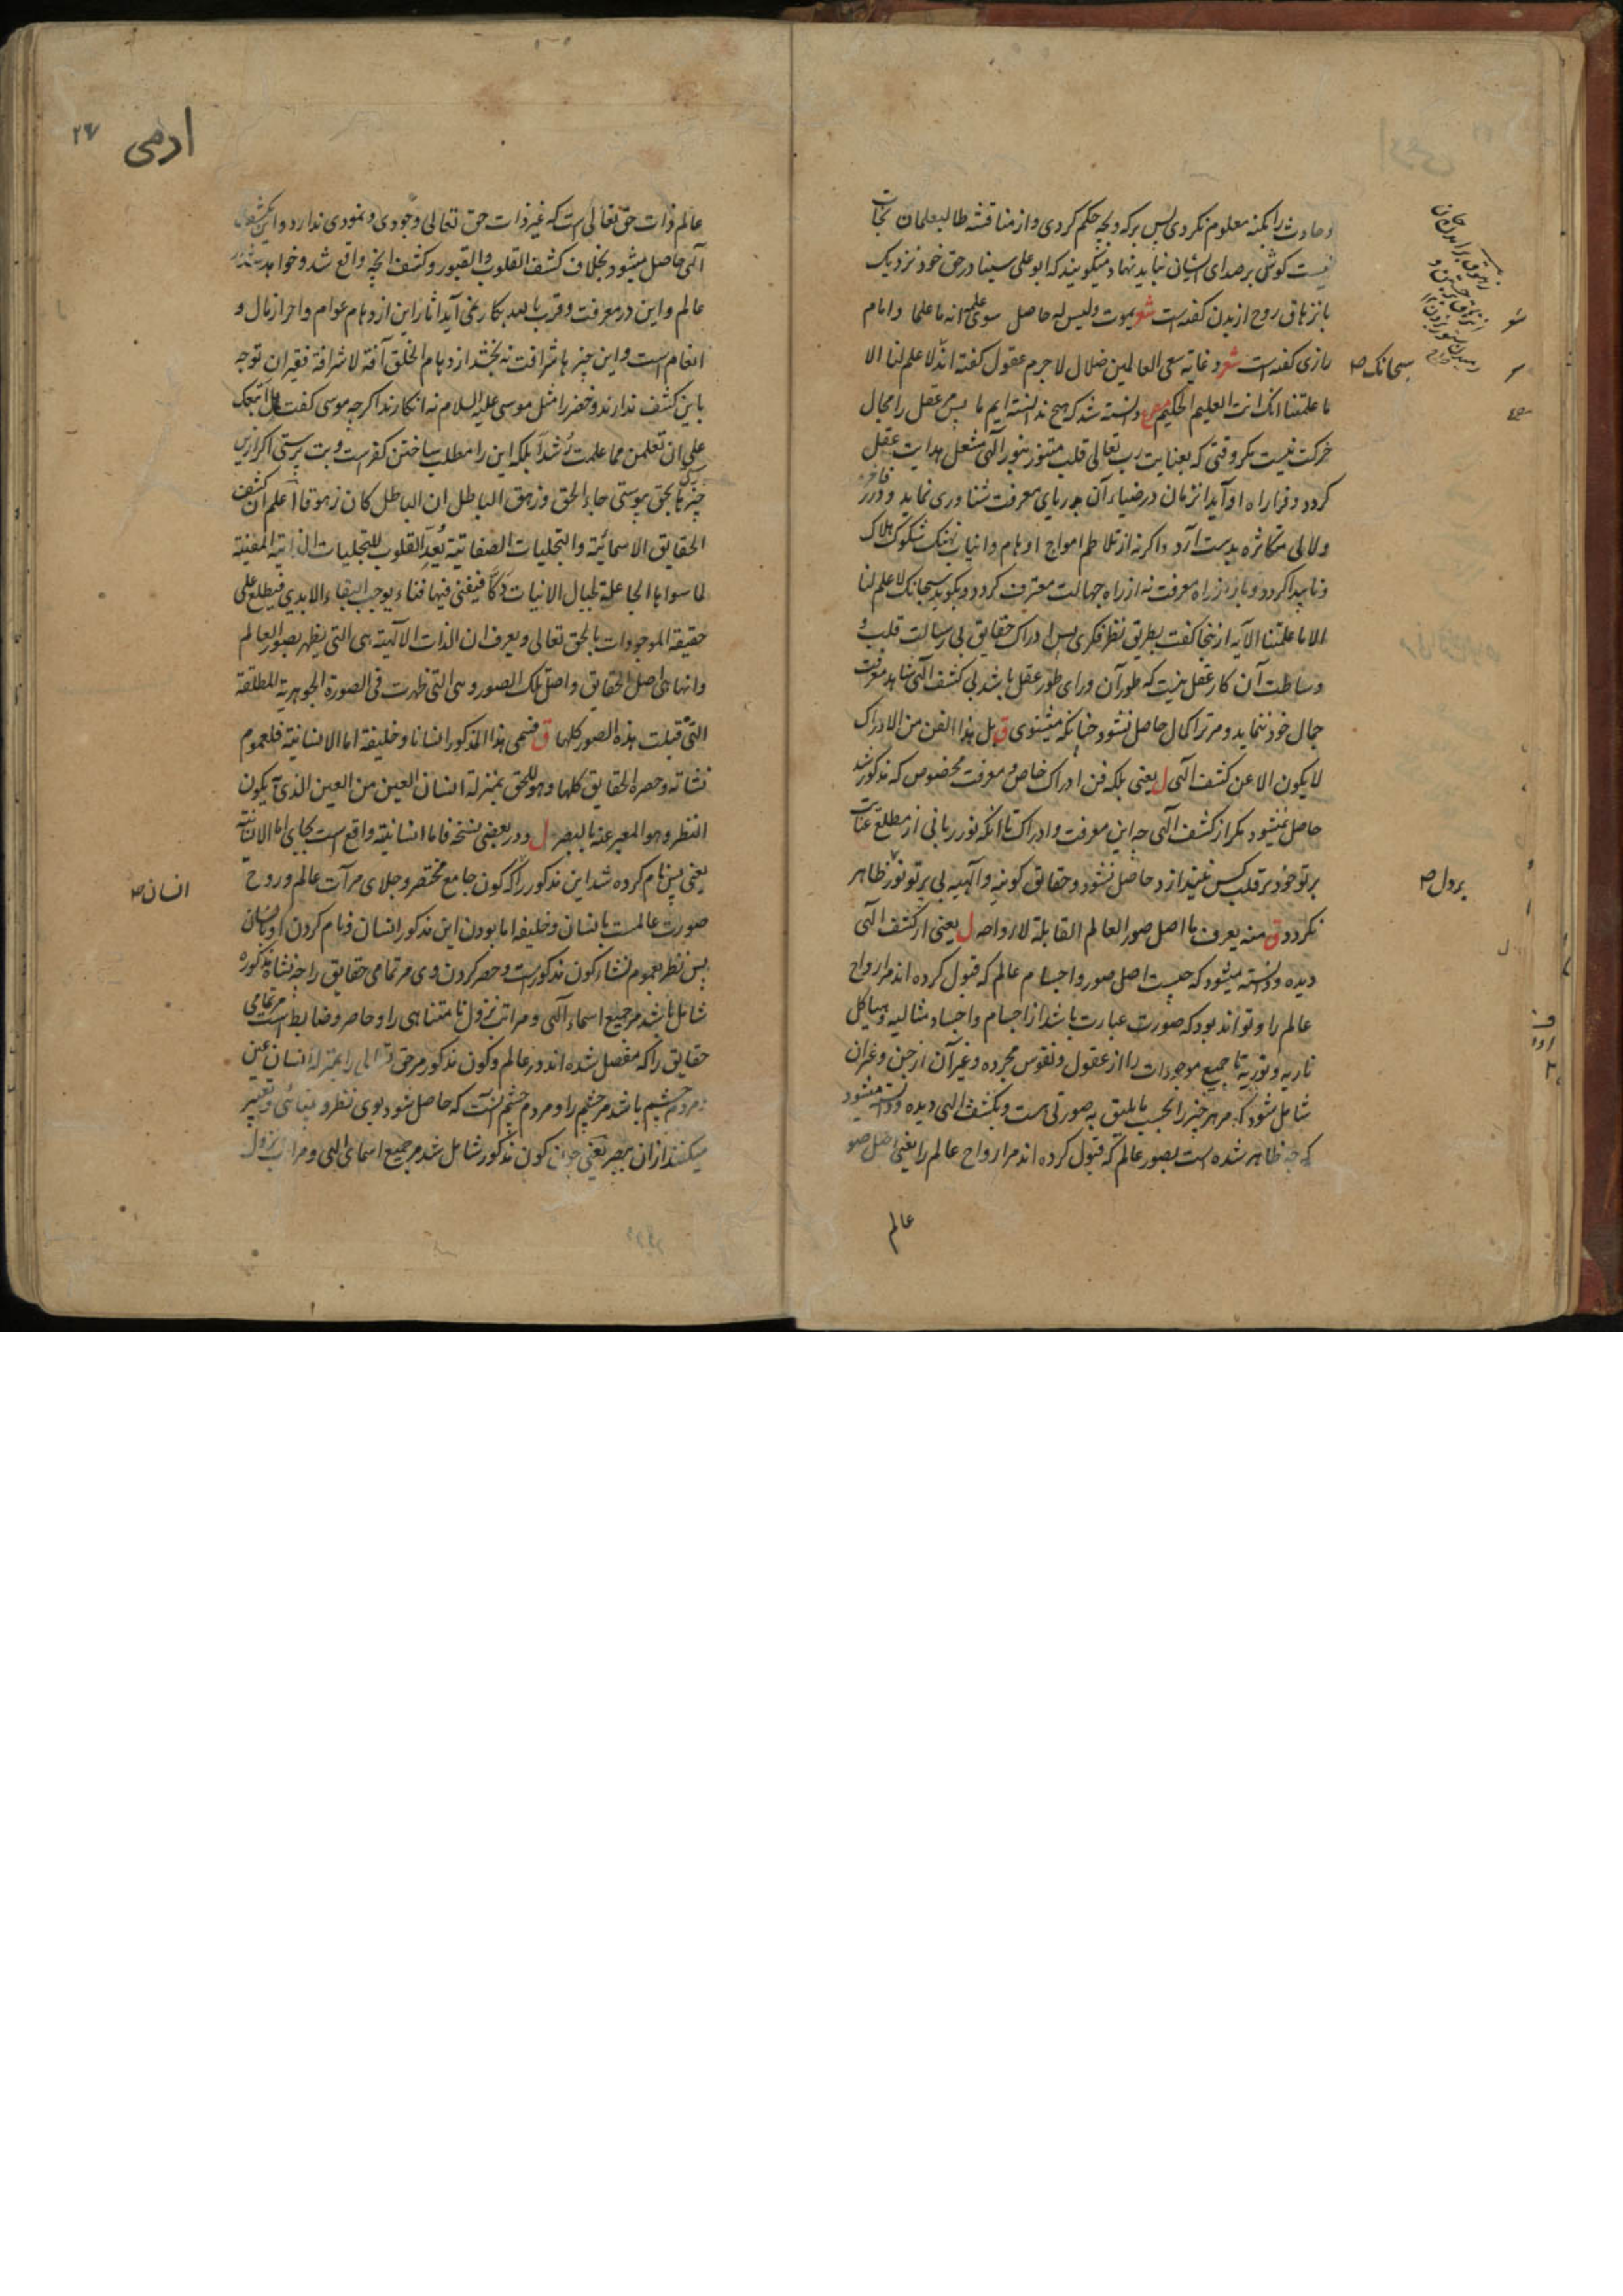 و حادث را بکنه معلوم نکردی پس بر که و بچه حکم کردی و از مناقشه طالبعلمان نجات
نیست کوش بر صدای ایشان نباید نهاد میگویند که ابو علی سینا در حق خود نزدیک
بانزهاق روح از بدن گفته است شعر یموت و لیس له حاصل سوی علمه انه ما علما و امام
رازی گفته است شعر و غایة سعی العالمین ضلال لاجرم عقول گفته اند لا علم لنا الا
سبحانک صح
ما علمتنا انک انت العلیم الحکیم دانسته شد که هیچ ندانسته ایم ما پس عقل را مجال
حرکت نیست مکر وقتی که بعنایت رب تعالی قلب متنور بنور الهی مشعل هدایت عقل
کردد و فرا راه او آید انزمان در ضیاء آن بدریای معرفت شناوری نماید و درر فاخر
و لالی متکاثره بدست آرد و اکرنه از تلاطم امواج اوهام و انیاب نهنک شکوک هلاک
و ناپیدا کردد و باز از راه معرفت نه از راه جهالت معترف کردد و بکوید سبحانک لا علم لنا
الا ما علمتنا الآیه ازینجا گفت بطریق نظر فکری پس ادراک حقایق بی رسالت قلب و
وساطت آن کار عقل نیست که طور آن ورای طور عقل باشد بی کشف الهی شاهد معرفت
جمال خود ننماید و مر ترا کمال حاصل نشود چنانکه میشنوی ق بل هذا الفن من الادراک
لا یکون الا عن کشف الهی ل یعنی بلکه فن ادراک خاص و معرفت مخصوص که مذکور شد
حاصل نمیشود مکر از کشف الهی چه این معرفت و ادراک تا آنکه نور ربانی از مطلع عنایت
پرتو خود بر قلب کس نیندازد حاصل نشود و حقایق کونیه و الهیه بی پرتو نور ظاهر
بر دل صح
نکردد ق منه یعرف ما اصل صور العالم القابلة لارواحه ل یعنی از کشف الهی
دیده و دانسته میشود که چیست اصل صور و اجسام عالم که قبول کرده اند مر ارواح
عالم را و تواند بود که صورت عبارت باشد از اجسام و اجساد مثالیه و هیاکل
ناریه و نوریه تا جمیع موجودات را از عقول و نفوس مجرده و غیر آن از جن و غیران
شامل شود که مر هر چیز را بحسب ما یلیق به صورتی است و بکشف الهی دیده و دانسته میشود
که چه ظاهر شده است بصور عالم که قبول کرده اند مر ارواح عالم را یعنی اصل صور
عالم
ادمی
۲۷
عالم ذات حق تعالی است که غیر ذات حق تعالی وجودی و نمودی ندارد و این کشف
الهی حاصل میشود بخلاف کشف القلوب و القبور و کشف انچه واقع شد و خواهد شد در
عالم و این در معرفت و قرب یا بعد بکار نمی آید اثار این ازدهام عوام و احراز مال و
انعام است و این چیزها شرافت نه بخشد ازدهام الخلق آفة لا شرافة فقیران توجه
باین کشف ندارند و خضر را مثل موسی علیه السلام نه انکارند اکرچه موسی گفت هل اتبعک
علی ان تعلمن مما علمت رشدا بلکه این را مطلب ساختن کفر است و بت پرستی اکر ازین
چیزها بحق پیوستی جاء الحق و زهق الباطل ان الباطل کان زهوقا اعلم ان کشف
الحقایق الاسمائیة و التجلیات الصفاتیة یعد القلوب للتجلیات الذاتیة المفنیة
لما سواها الجاعلة لجبال الانیات دکا فیفنی فیها فناء یوجب البقاء الابدی فیطلع علی
حقیقة الموجودات بالحق تعالی و یعرف ان الذات الالهیة هی التی یظهر بصور العالم
و انها هی اصل الحقایق و اصل تلک الصور و هی التی ظهرت فی الصورة الجوهریة المطلقة
التی قبلت هذه الصور کلها ق فسمی هذا المذکور انسانا و خلیفة اما الانسانیة فلعموم
نشاته و حصره الحقایق کلها و هو للحق بمنزلة انسان العین من العین الذی یکون
النظر و هو المعبر عنه بالبصر ل و در بعضی نسخه فاما انسانیته واقع است بجای اما الانسانیة
یعنی پس نام کرده شد این مذکور را که کون جامع مختصر و جلای مرآت عالم و روح
انسان صح
صورت عالمست بانسان و خلیفه اما بودن این مذکور انسان و نام کردن او بانسان
پس نظر بعموم نشاء کون مذکورست و حصر کردن وی مر تمامی حقایق را چه نشاة مذکوره
شامل باشد مر جمیع اسماء الهی و مراتب نزول نامتناهی را و حاصر و ضابط است مر تمامی
حقایق را که مفصل شده اند در عالم و کون مذکور مر حق تعالی را بمنزله انسان عین
و مردم چشم باشد مر چشم را و مردم چشم آنست که حاصل شود بوی نظر و بینائی و تعبیر
میکنند از ان ببصر یعنی چون کون مذکور شامل شد مر جمیع اسمای الهی و مراتب نزول